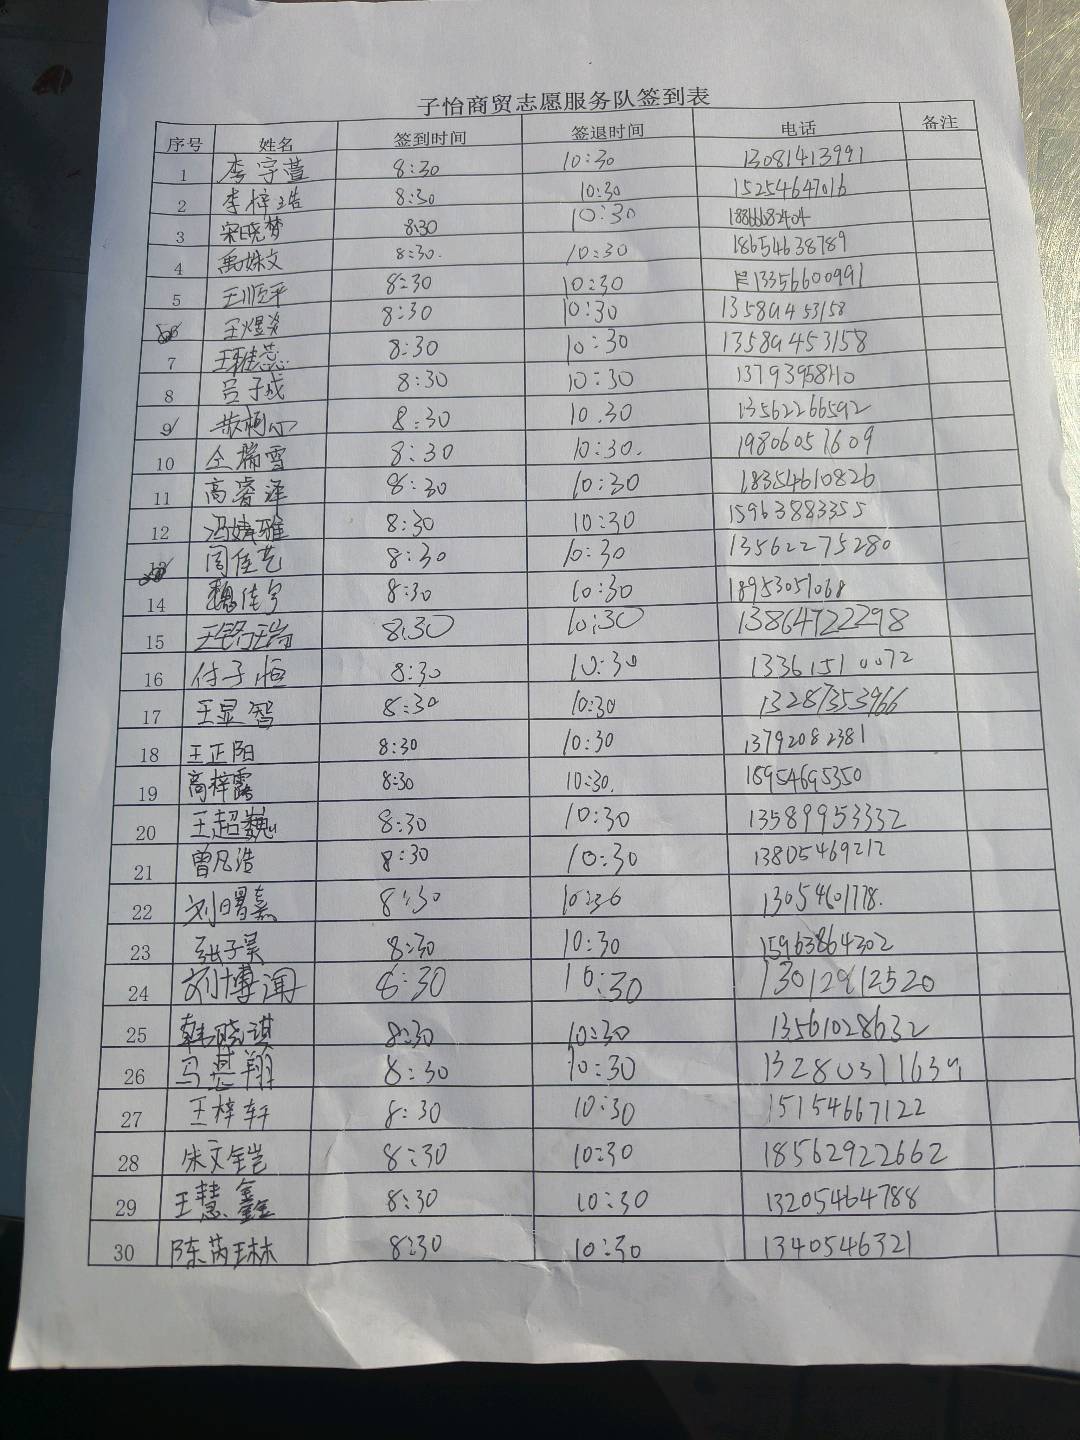 子怡商贸志愿服务队签到表
序号 姓名 签到时间 签退时间 电话 备注
1 李宇萱 8:30 10:30 13081413991
2 李梓浩 8:30 10:30 15254647016
3 宋晓梦 8:30 10:30 18866682404
4 禹姝文 8:30. 10:30 18654638789
5 王顺平 8:30 10:30 13356600991
王煜炎 8:30 10:30 13589453158
7 王雅蕊 8:30 10:30 13589453158
8 吕子成 8:30 10:30 13793958110
9 8:30 10.30 13562266592
10 仝瑞雪 8:30 10:30. 19806057609
11 高睿泽 8:30 10:30 18354610826
12 冯婧雅 8:30 10:30 15963883355
13 闫佳艺 8:30 10:30 13562275280
14 魏佳宇 8:30 10:30 18953051068
15 王铭瑞 8:30 10:30 13864722298
16 付子恒 8:30 10:30 13361510072
17 王显智 8:30 10:30 13287353966
18 王正阳 8:30 10:30 13792082381
19 高梓露 8:30 10:30. 18954695350
20 王超巍 8:30 10:30 13589953332
21 曾凡浩 8:30 10:30 13805469212
22 刘曙嘉 8:30 10:30 13054601778.
23 张子昊 8:30 10:30 15963864302
24 刘博闻 8:30 10:30 13012912520
25 韩晓琪 8:30 10:30 13561028632
26 马慧翔 8:30 10:30 13280311639
27 王梓轩 8:30 10:30 15154667122
28 朱文铠 8:30 10:30 18562922662
29 王慧鑫 8:30 10:30 13205464788
30 陈芮琳 8:30 10:30 1340546321